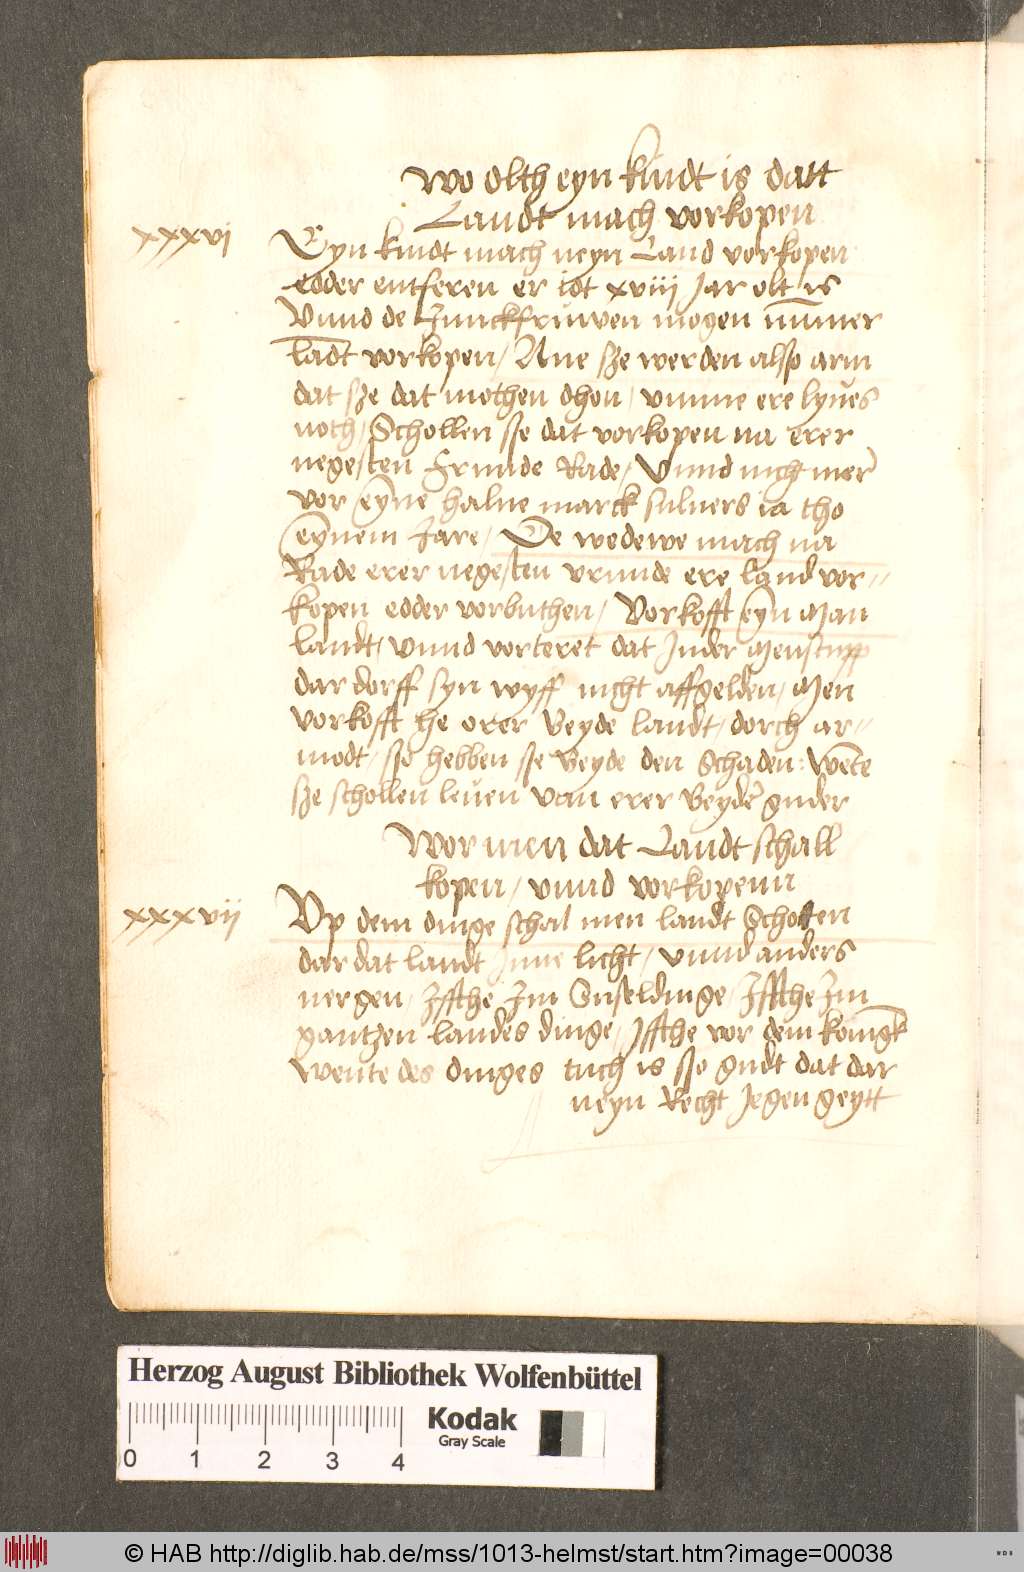 Wo olth eyn kindt is datt
Landt mach vorkopen
xxxvi Eyn kindt mach neyn Land vorkopen
edder entferen er idt xviii Jar olt is
Vnnd de Junckfruwen mogen nummer
ladt vorkopen / Ane sze werden alszo arm
dat sze dat mothen dhon / vmme ere lyues
noth / Schollen sse dat vorkopen na erer
negesten Frunde Rade / Vnnd nich mer
vor eyne halue marck suluers in tho
eynem Jare / De wedewe mach na
Rade erer negesten vrunde ere land vor=
kopen edder vorbuthen / Vorkofft eyn Man
landt / vnnd vorteret dat Jnder
dar dorff syn wyff nicht affgelden / Men
vorkofft he orer Beyde landt / dorch ar=
modt / sso hebben sse Beyde den Schaden : Wente
sze schollen leuen van erer Beyder guder
Wor men dat Landt schall
kopen / vnnd vorkopenn
xxxvii Vp dem dinge schal men landt Schoten
dar dat landt Jnne licht / vnnd anders
nergen / Jffthe Jm dinge / Jffthe Jm
gantzen landes dinge / Jffthe vor dem konigk
wente des dinges tuch is sso gudt dat dar
neyn Recht Jegen geytt
Herzog August Bibliothek Wolfenbüttel
Kodak
Gray Scale
0 1 2 3 4
© HAB http://diglib.hab.de/mss/1013-helmst/start.htm?image=00038